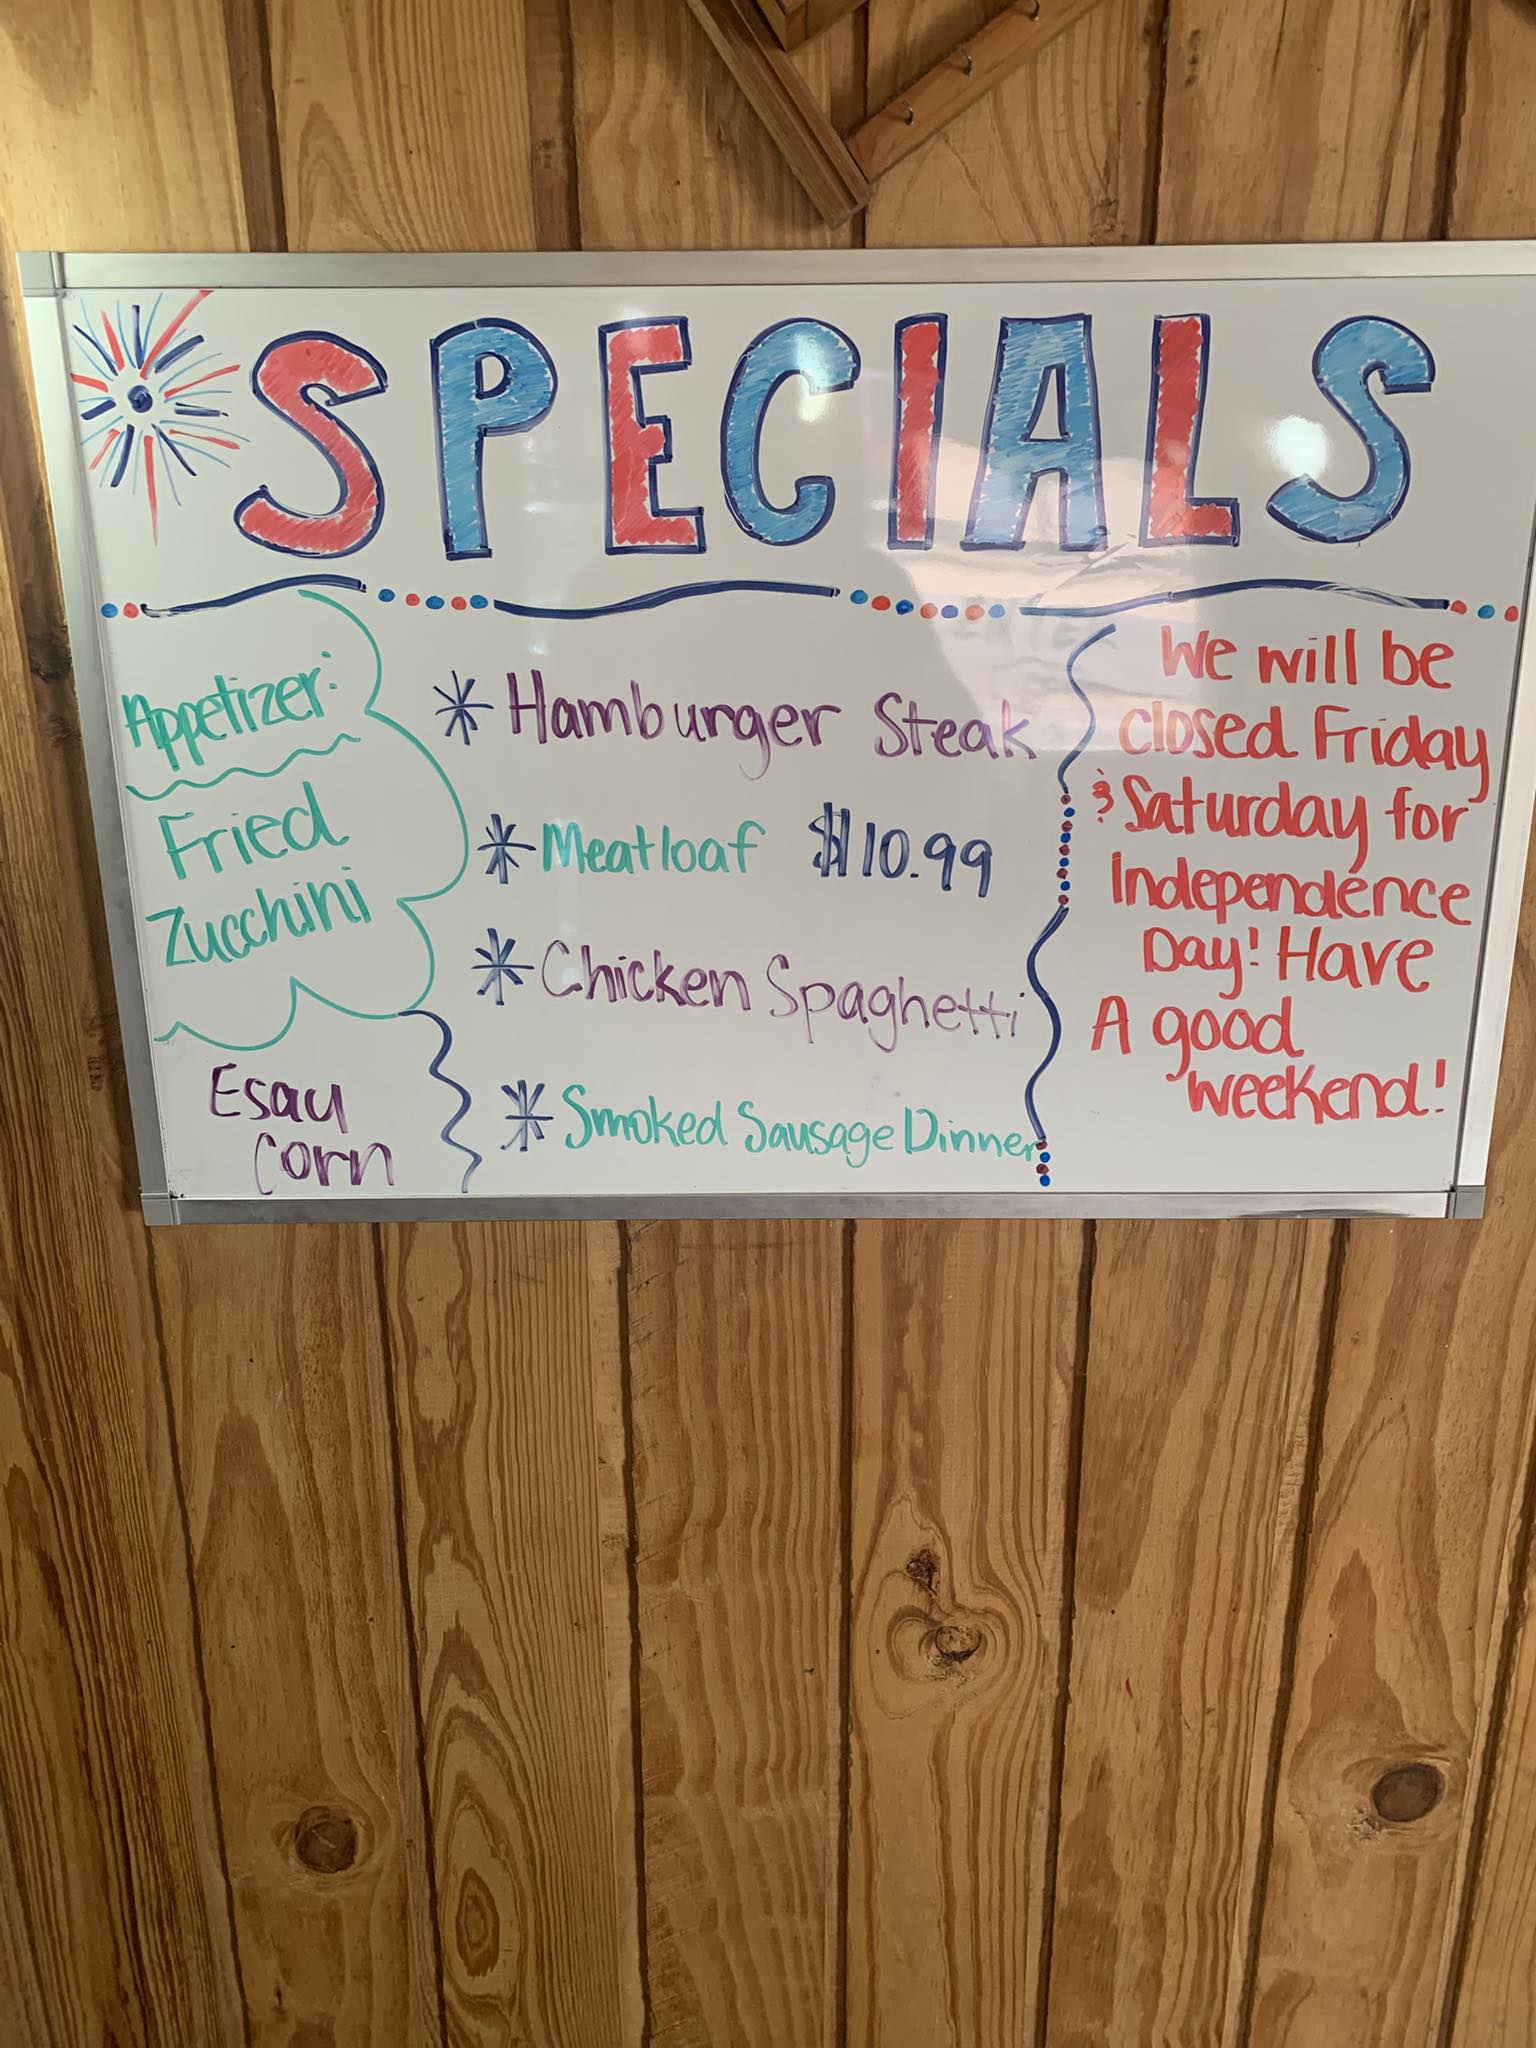 SPECIALS
Appetizer:
Fried
Zucchini
Esau
Corn
* Hamburger Steak
* Meatloaf $10.99
* Chicken Spaghetti
* Smoked Sausage Dinner
We will be
closed Friday
& Saturday for
Independence
Day! Have
A good
weekend!